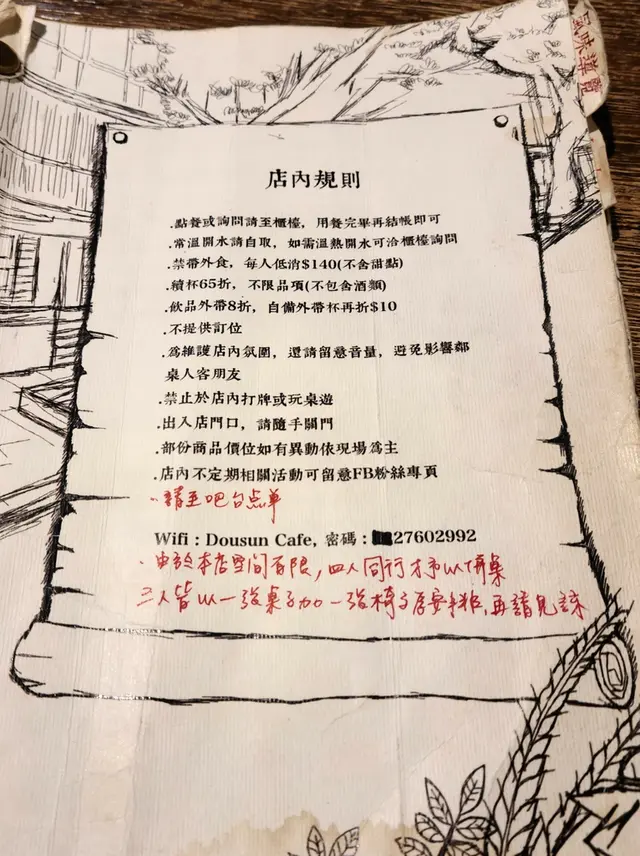 風味
店內規則
.點餐或詢問請至櫃檯，用餐完畢再結帳即可
.常溫開水請自取，如需溫熱開水可洽櫃檯詢問
.禁帶外食，每人低消$140(不含甜點)
.續杯65折，不限品項(不包含酒類)
.飲品外帶8折，自備外帶杯再折$10
.不提供訂位
.為維護店內氛圍，還請留意音量，避免影響鄰
桌人客朋友
.禁止於店內打牌或玩桌遊
.出入店門口，請隨手關門
.部份商品價位如有異動依現場為主
.店內不定期相關活動可留意FB粉絲專頁
.請至吧台点单
Wifi：Dousun Cafe, 密碼：27602992
.由於本店空间有限，四人同行才予以併桌
三人皆以一張桌子加一張椅子為安排，再請見諒